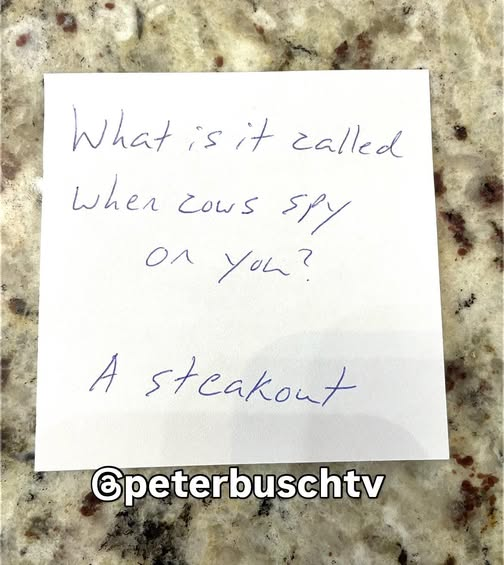 What is it called
when cows spy
on you?
A steakout
@peterbuschtv